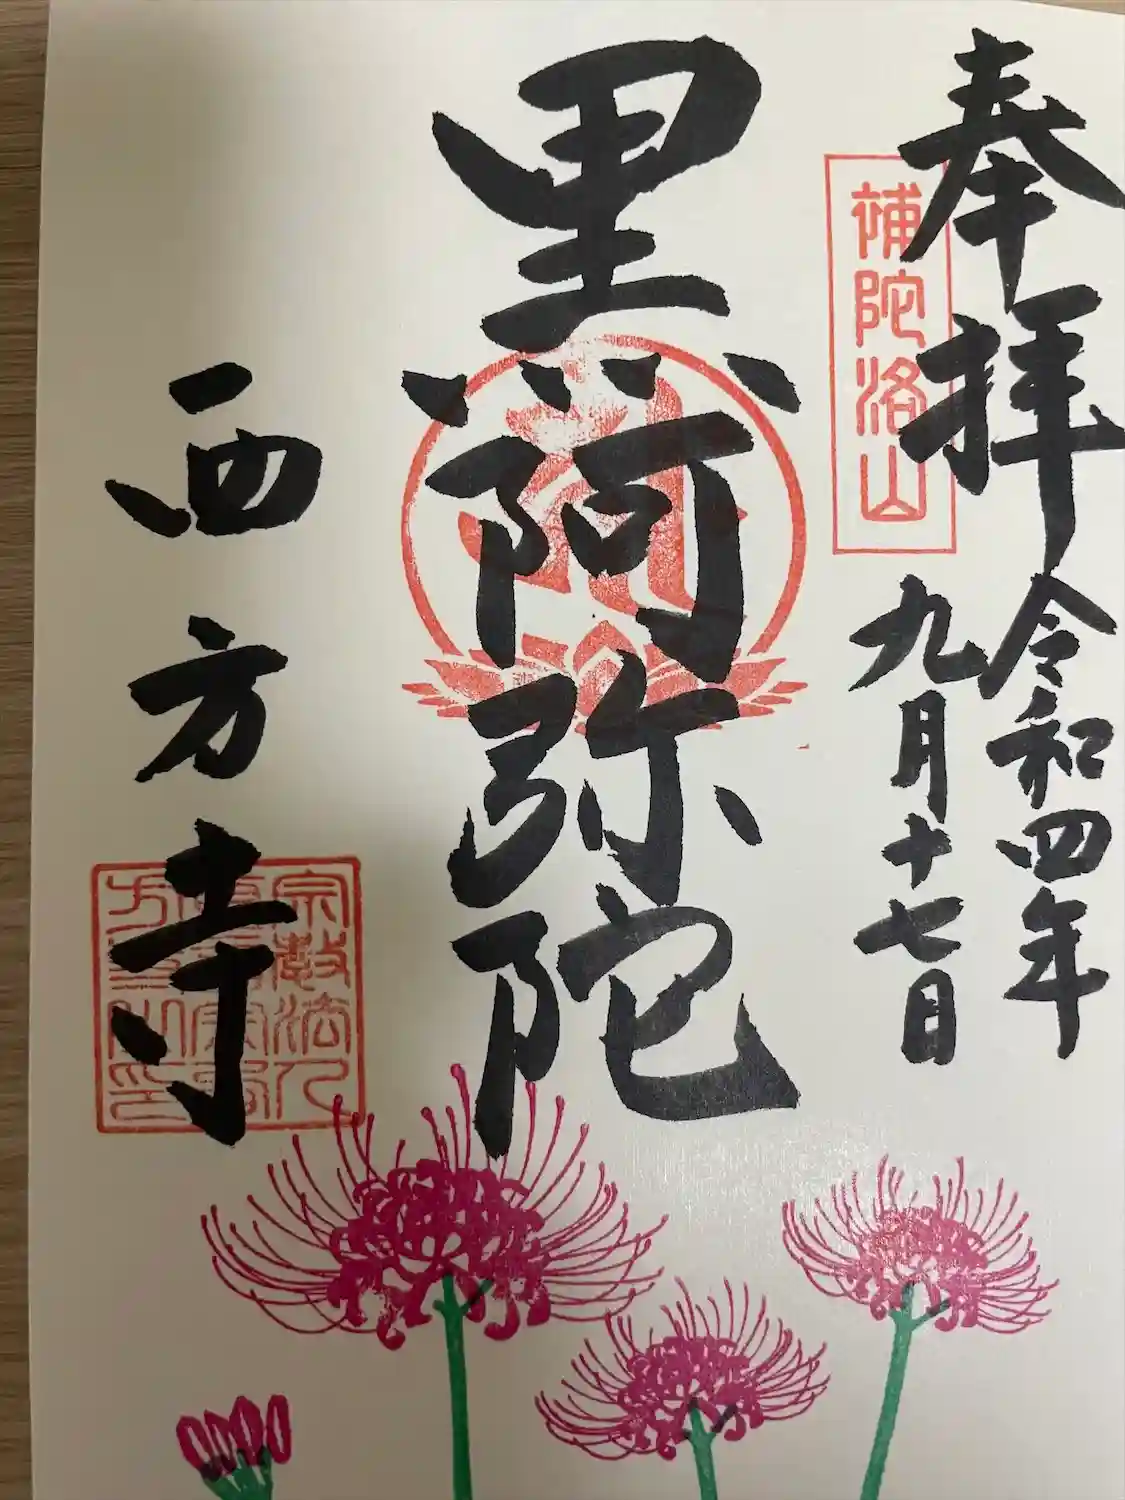 奉拝
補陀洛山
令和四年
九月十七日
黒阿弥陀
西方寺